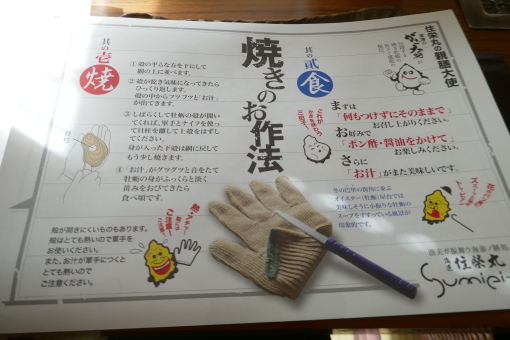 焼きのお作法
其の壱
焼
①殻の平らな方を下にして
網の上に並べます。
②殻が乾き気味になってきたら
ひっくり返します。
殻の中からフツフツと「お汁」
が出てきます。
③しばらくして牡蠣の殻が開い
てくれば、軍手とナイフを使っ
て貝柱を離して上殻をはずし
てください。
身が入った下殻は網に戻して
もう少し焼きます。
④「お汁」がグツグツと音をたて
牡蠣の身がふっくらと淡く
黄みをおびてきたら
食べ頃です。
殻が開きにくいものもあります。
殻はとても熱いので軍手を
お使いください。
また、お汁が軍手につくと
とても熱いので
ご注意ください。
其の弐
食
まずは
「何もつけずにそのままで」
お召し上がりください。
お好みで
「ポン酢・醤油をかけて」
お楽しみください。
さらに
「お汁」がまた美味しいです。
冬の巴里の街角に並ぶ
オイスター(牡蠣)屋台では
美味しそうに小振りな牡蠣の
スープをすすっている風景が
印象的です。
住栄丸の親善大使
住栄丸